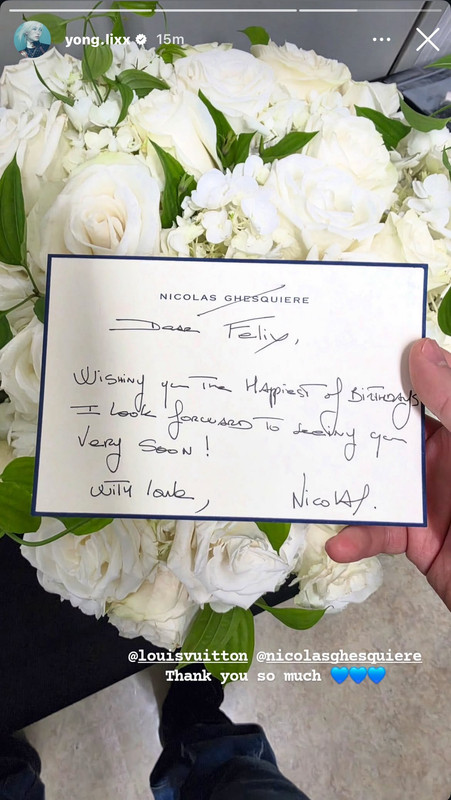 yong.lixx 15m
NICOLAS GHESQUIERE
Dear Felix,
Wishing you The Happiest of Birthdays
I look forward to seeing you
very soon!
with love,
Nicolas.
@louisvuitton @nicolasghesquiere
Thank you so much 💙💙💙